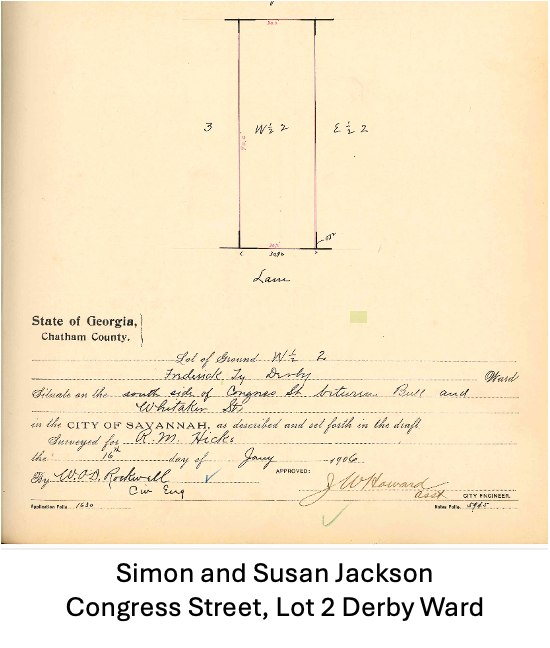 3
W ½ 2
E ½ 2
30.96
Lane
State of Georgia,
Chatham County.
Lot of Ground W ½ 2
Frederick Ty Derby Ward
Situate on the south side of Congress St. between Bull and
Whitaker Sts
in the CITY OF SAVANNAH, as described and set forth in the draft
Surveyed for R. M. Hicks
the 16th day of Jany 1906
By W. O'D. Rockwell APPROVED:
Civ Eng J W Howard
asst CITY ENGINEER.
Application Folio 1630 Notes Folio
Simon and Susan Jackson
Congress Street, Lot 2 Derby Ward